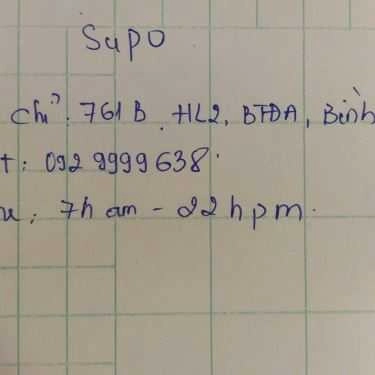 Supo
chỉ: 761B. HL2, BTĐA, Bình
t: 092 9999638.
u: 7h am - 22h pm.